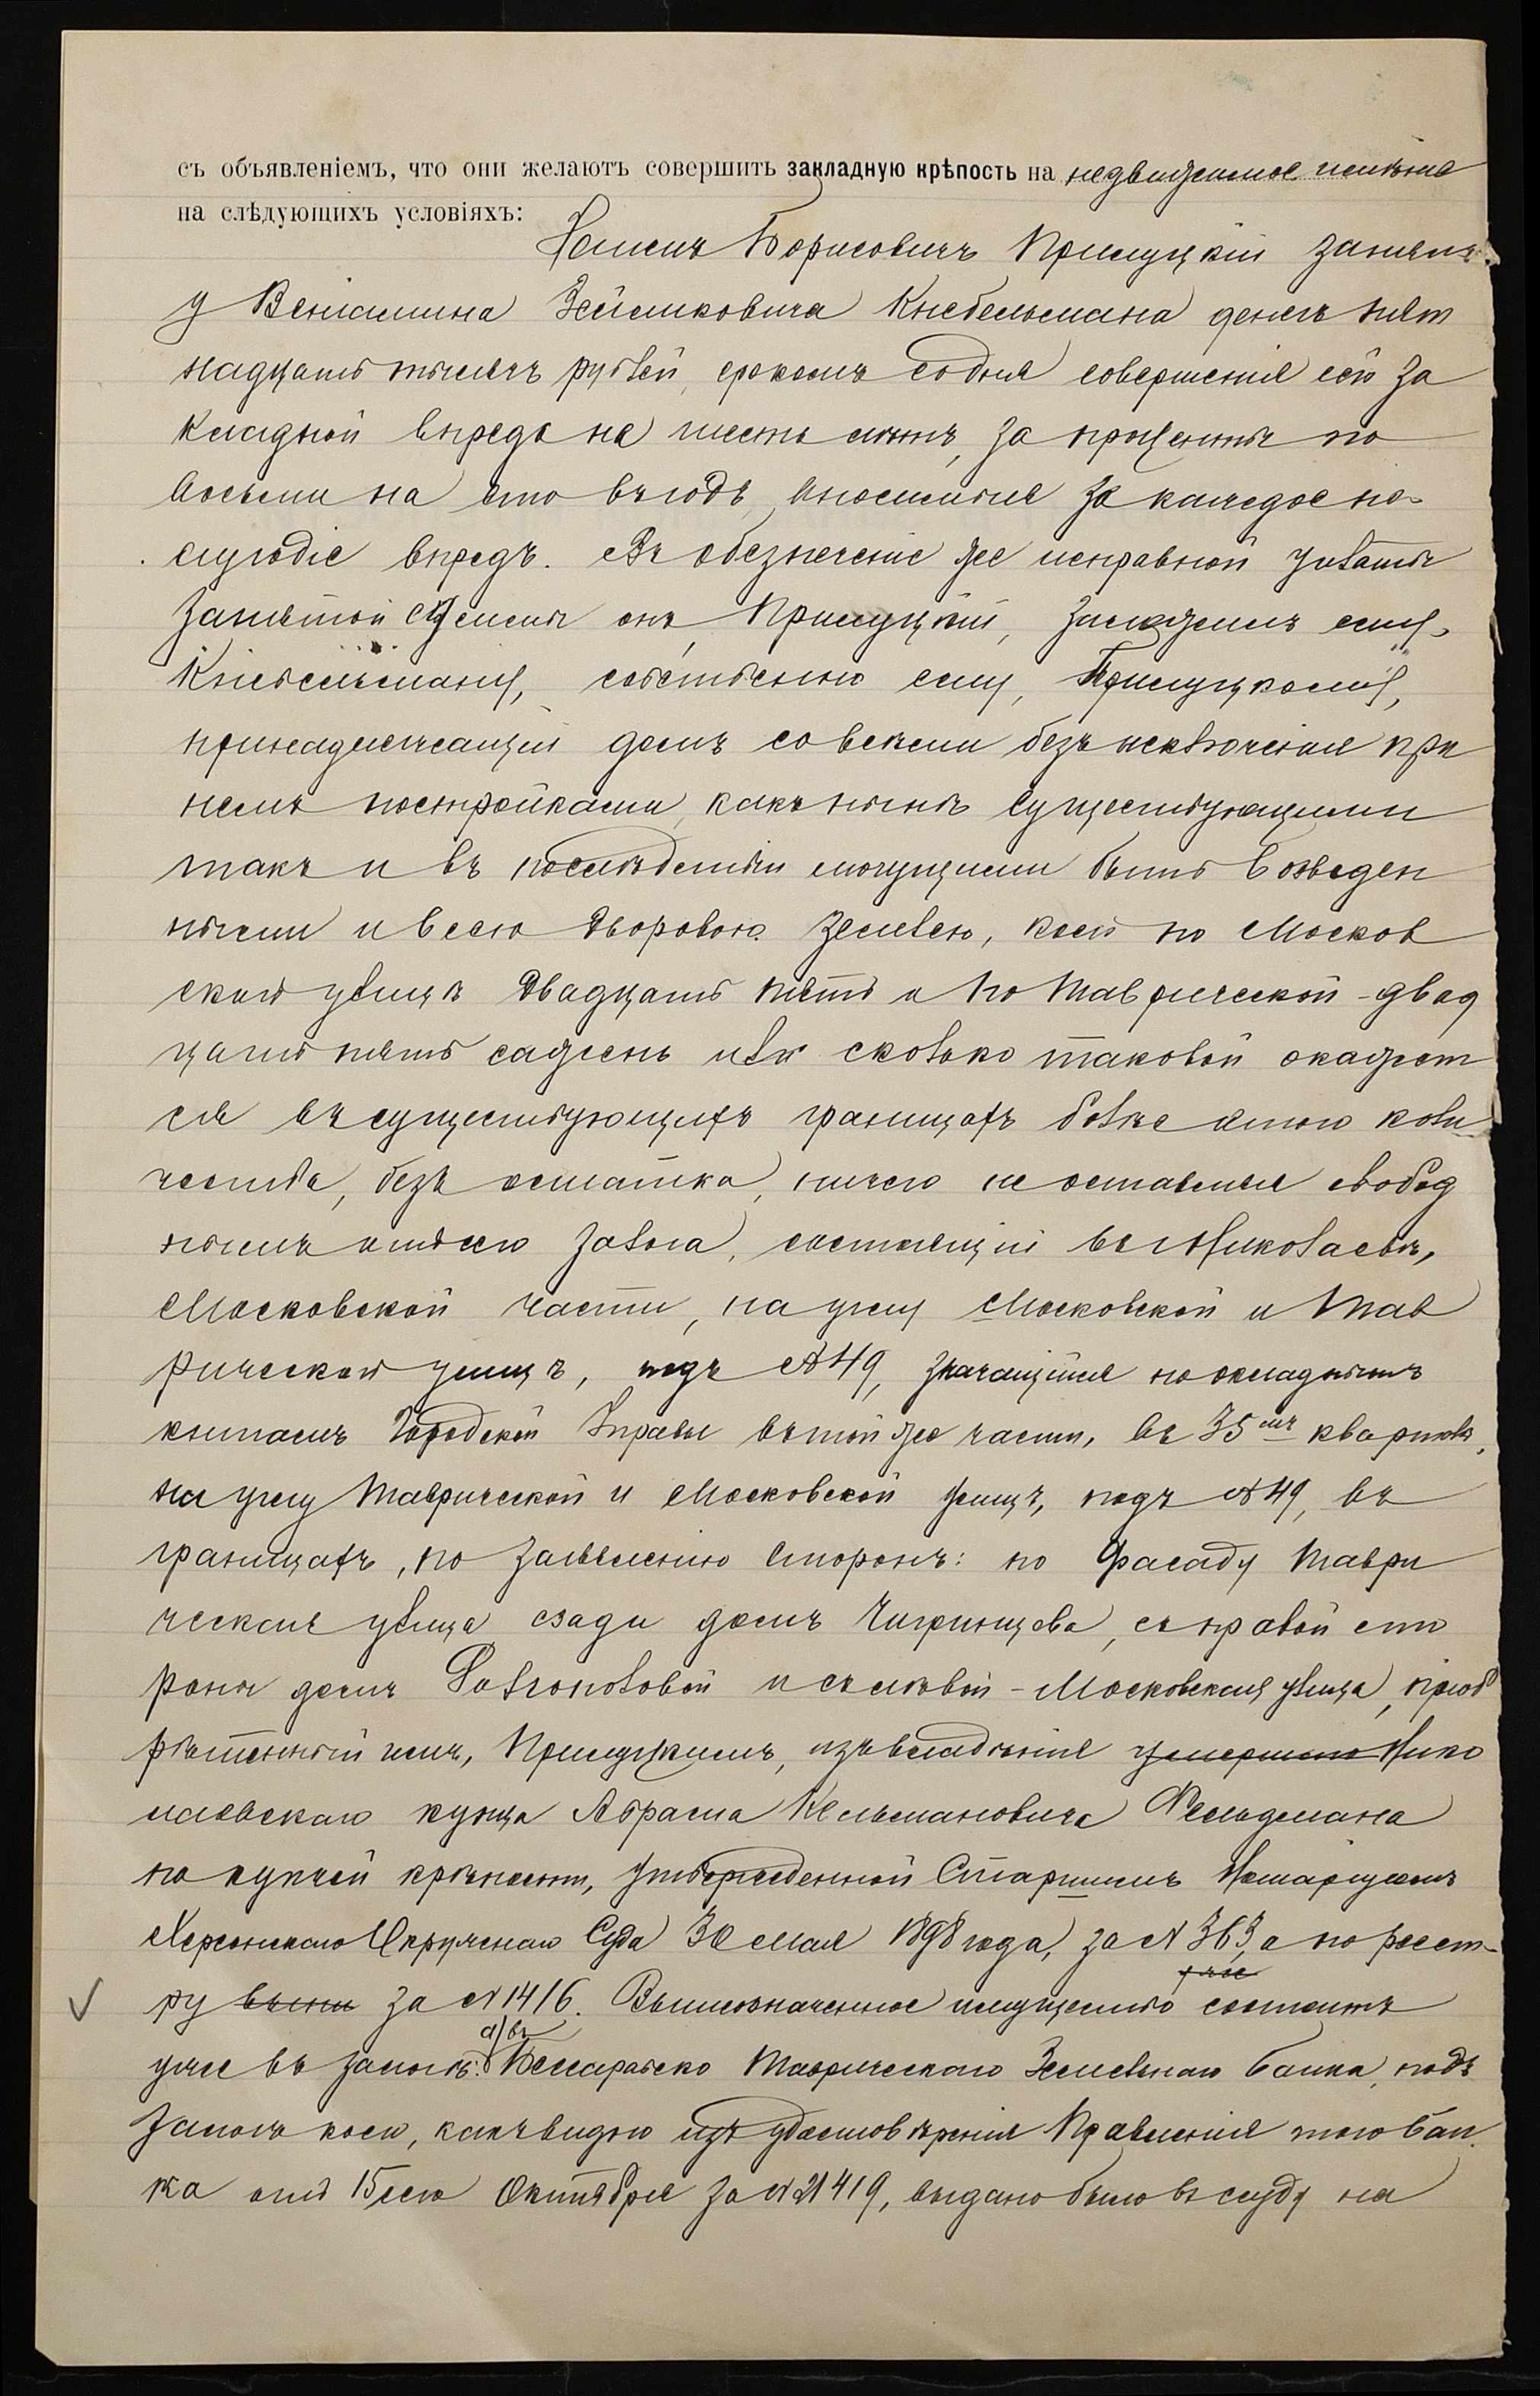 съ объявленіемъ, что они желаютъ совершить закладную крѣпость на недвижимое имѣніе
на слѣдующихъ условіяхъ:
Борисовичъ Прилуцкій занялъ
у Веніамина Зеймковича Кнебельмана денегъ пят
надцать тысячъ рублей, срокомъ со дня совершенія сей за
кладной впредь на шесть лѣтъ, за проценты по
восьми на сто въ годъ, вносимые за каждое по-
лугодіе впредъ. Въ обезпеченіе же исправной уплаты
занятой суммы онъ, Прилуцкій, заложилъ ему,
Кнебельману, собственно ему, Прилуцкому,
принадлежащій домъ со всѣми безъ исключенія при
немъ постройками, какъ нынѣ существующими
такъ и въ послѣдствіи могущими быть возведен
ными и всею дворовою землею, коей по Москов
ской улицѣ двадцать пять и по Таврической - двад
цать пять сажень или сколько таковой окажет
ся въ существующихъ границахъ болѣе этого коли
чества, безъ остатка, ничего не оставляя свобод
нымъ отъ сего залога, состоящій въ г. Николаевѣ,
Московской части, на углу Московской и Тав
рической улицъ, подъ № 49, значащійся по окладнымъ
книгамъ Городской Управы въ той же части, въ 35мъ кварталѣ,
на углу Таврической и Московской улицъ, подъ № 49, въ
границахъ, по заявленію сторонъ: по фасаду Таври
ческая улица сзади домъ Чигринцева, съ правой сто
роны домъ и съ лѣвой - Московская улица, пріоб
рѣтенный имъ, Прилуцкимъ, изъ владѣнія умершаго Нико
лаевскаго купца Абрама Кельмановича Фельдмана
по купчей крѣпости, утвержденной Старшимъ Нотаріусомъ
Херсонскаго Окружнаго Суда 30 мая 1898 года, за № 363, а по реест-
ру за № 1416. Вышеозначенное имущество состоитъ
уже въ залогѣ: а) въ Бессарабско Таврическаго Земельнаго банка, подъ
залогъ коего, какъ видно изъ удостовѣренія Правленія того бан
ка отъ 15 сего Октября за № 21419, выдано было въ ссуду на